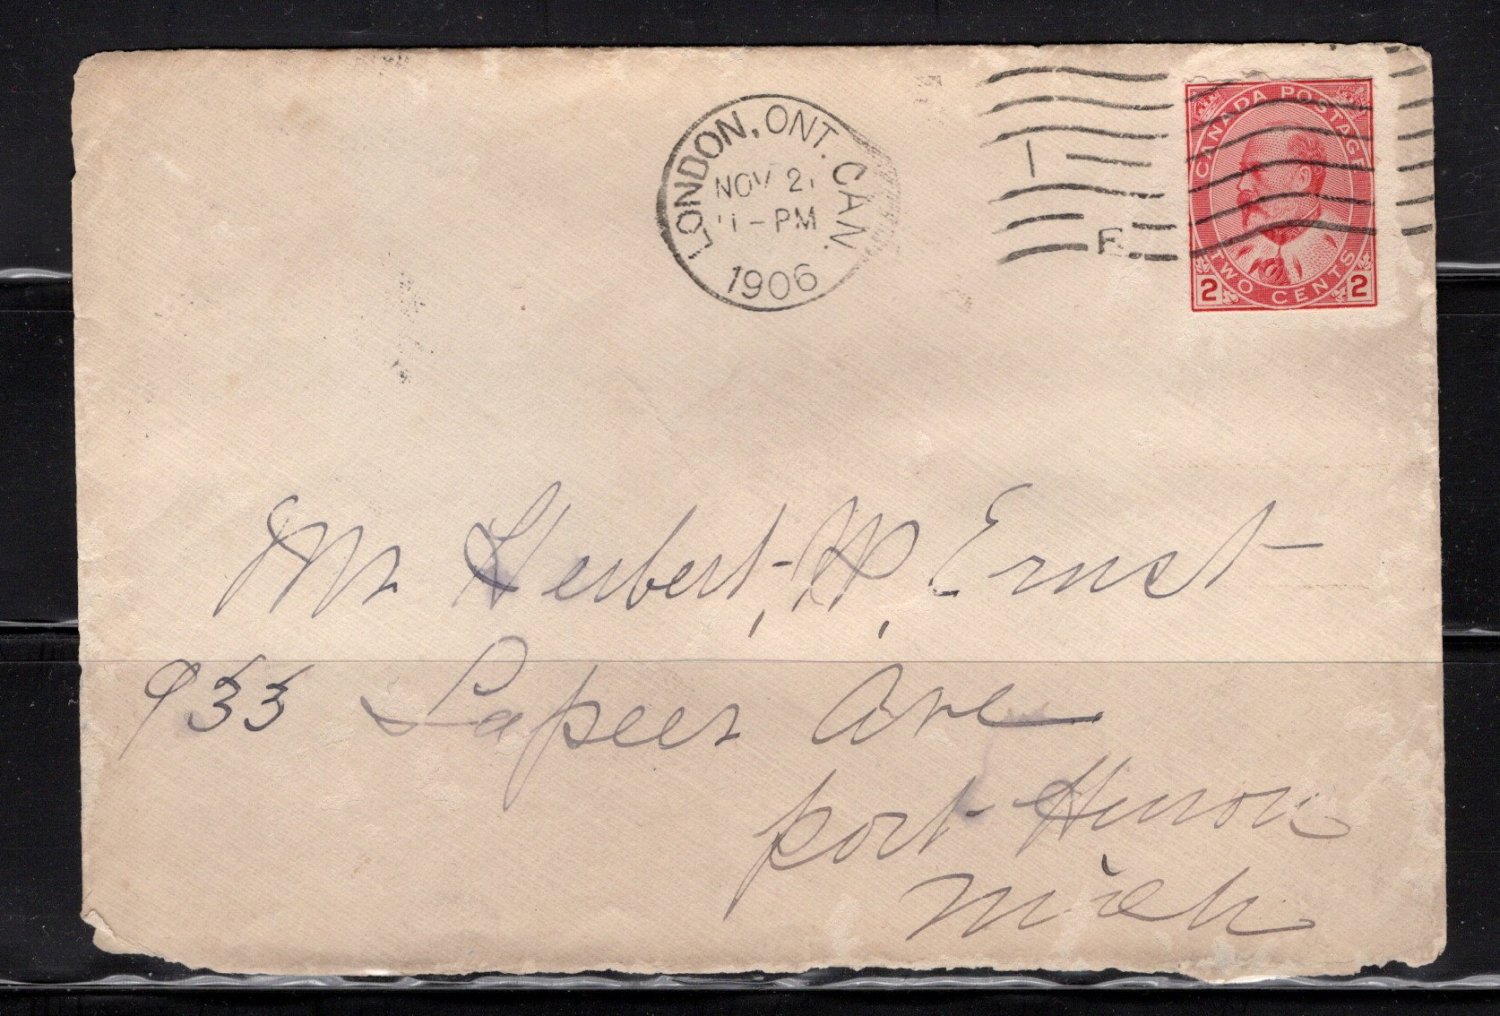 LONDON, ONT. CAN.
NOV 2
PM
1906
1
E.
CANADA POSTAGE
TWO CENTS
2 2
Mr Herbert W Ernst
933 Lapeer Ave
Port Huron
Mich